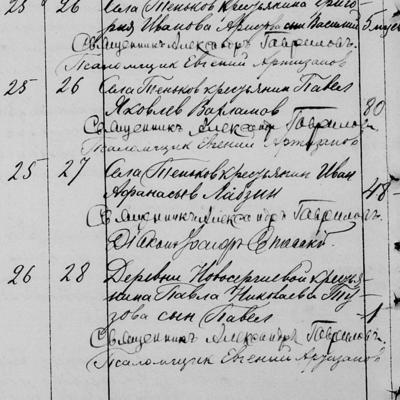 25 26 Села Теньков крестьянина Григо-
рия Иванова сын Василий 5
Священникъ Александръ Гавриловъ.
Псаломщик Евгений Артизанов
25 26 Села Теньков крестьянин Павел
Яковлев Варламов 80
Священникъ Александръ Гаврилов
Псаломщик Евгений Артизанов
25 27 Села Теньков крестьянин Иван
Афанасьев Лабзин 48
Священникъ Александръ Гавриловъ.
Диакон Иосифъ
26 28 Деревни Новосергиевой крестья-
нина Павла Николаева Ту-
зова сын Павел 1
Священникъ Александръ Гавриловъ.
Псаломщик Евгений Артизанов